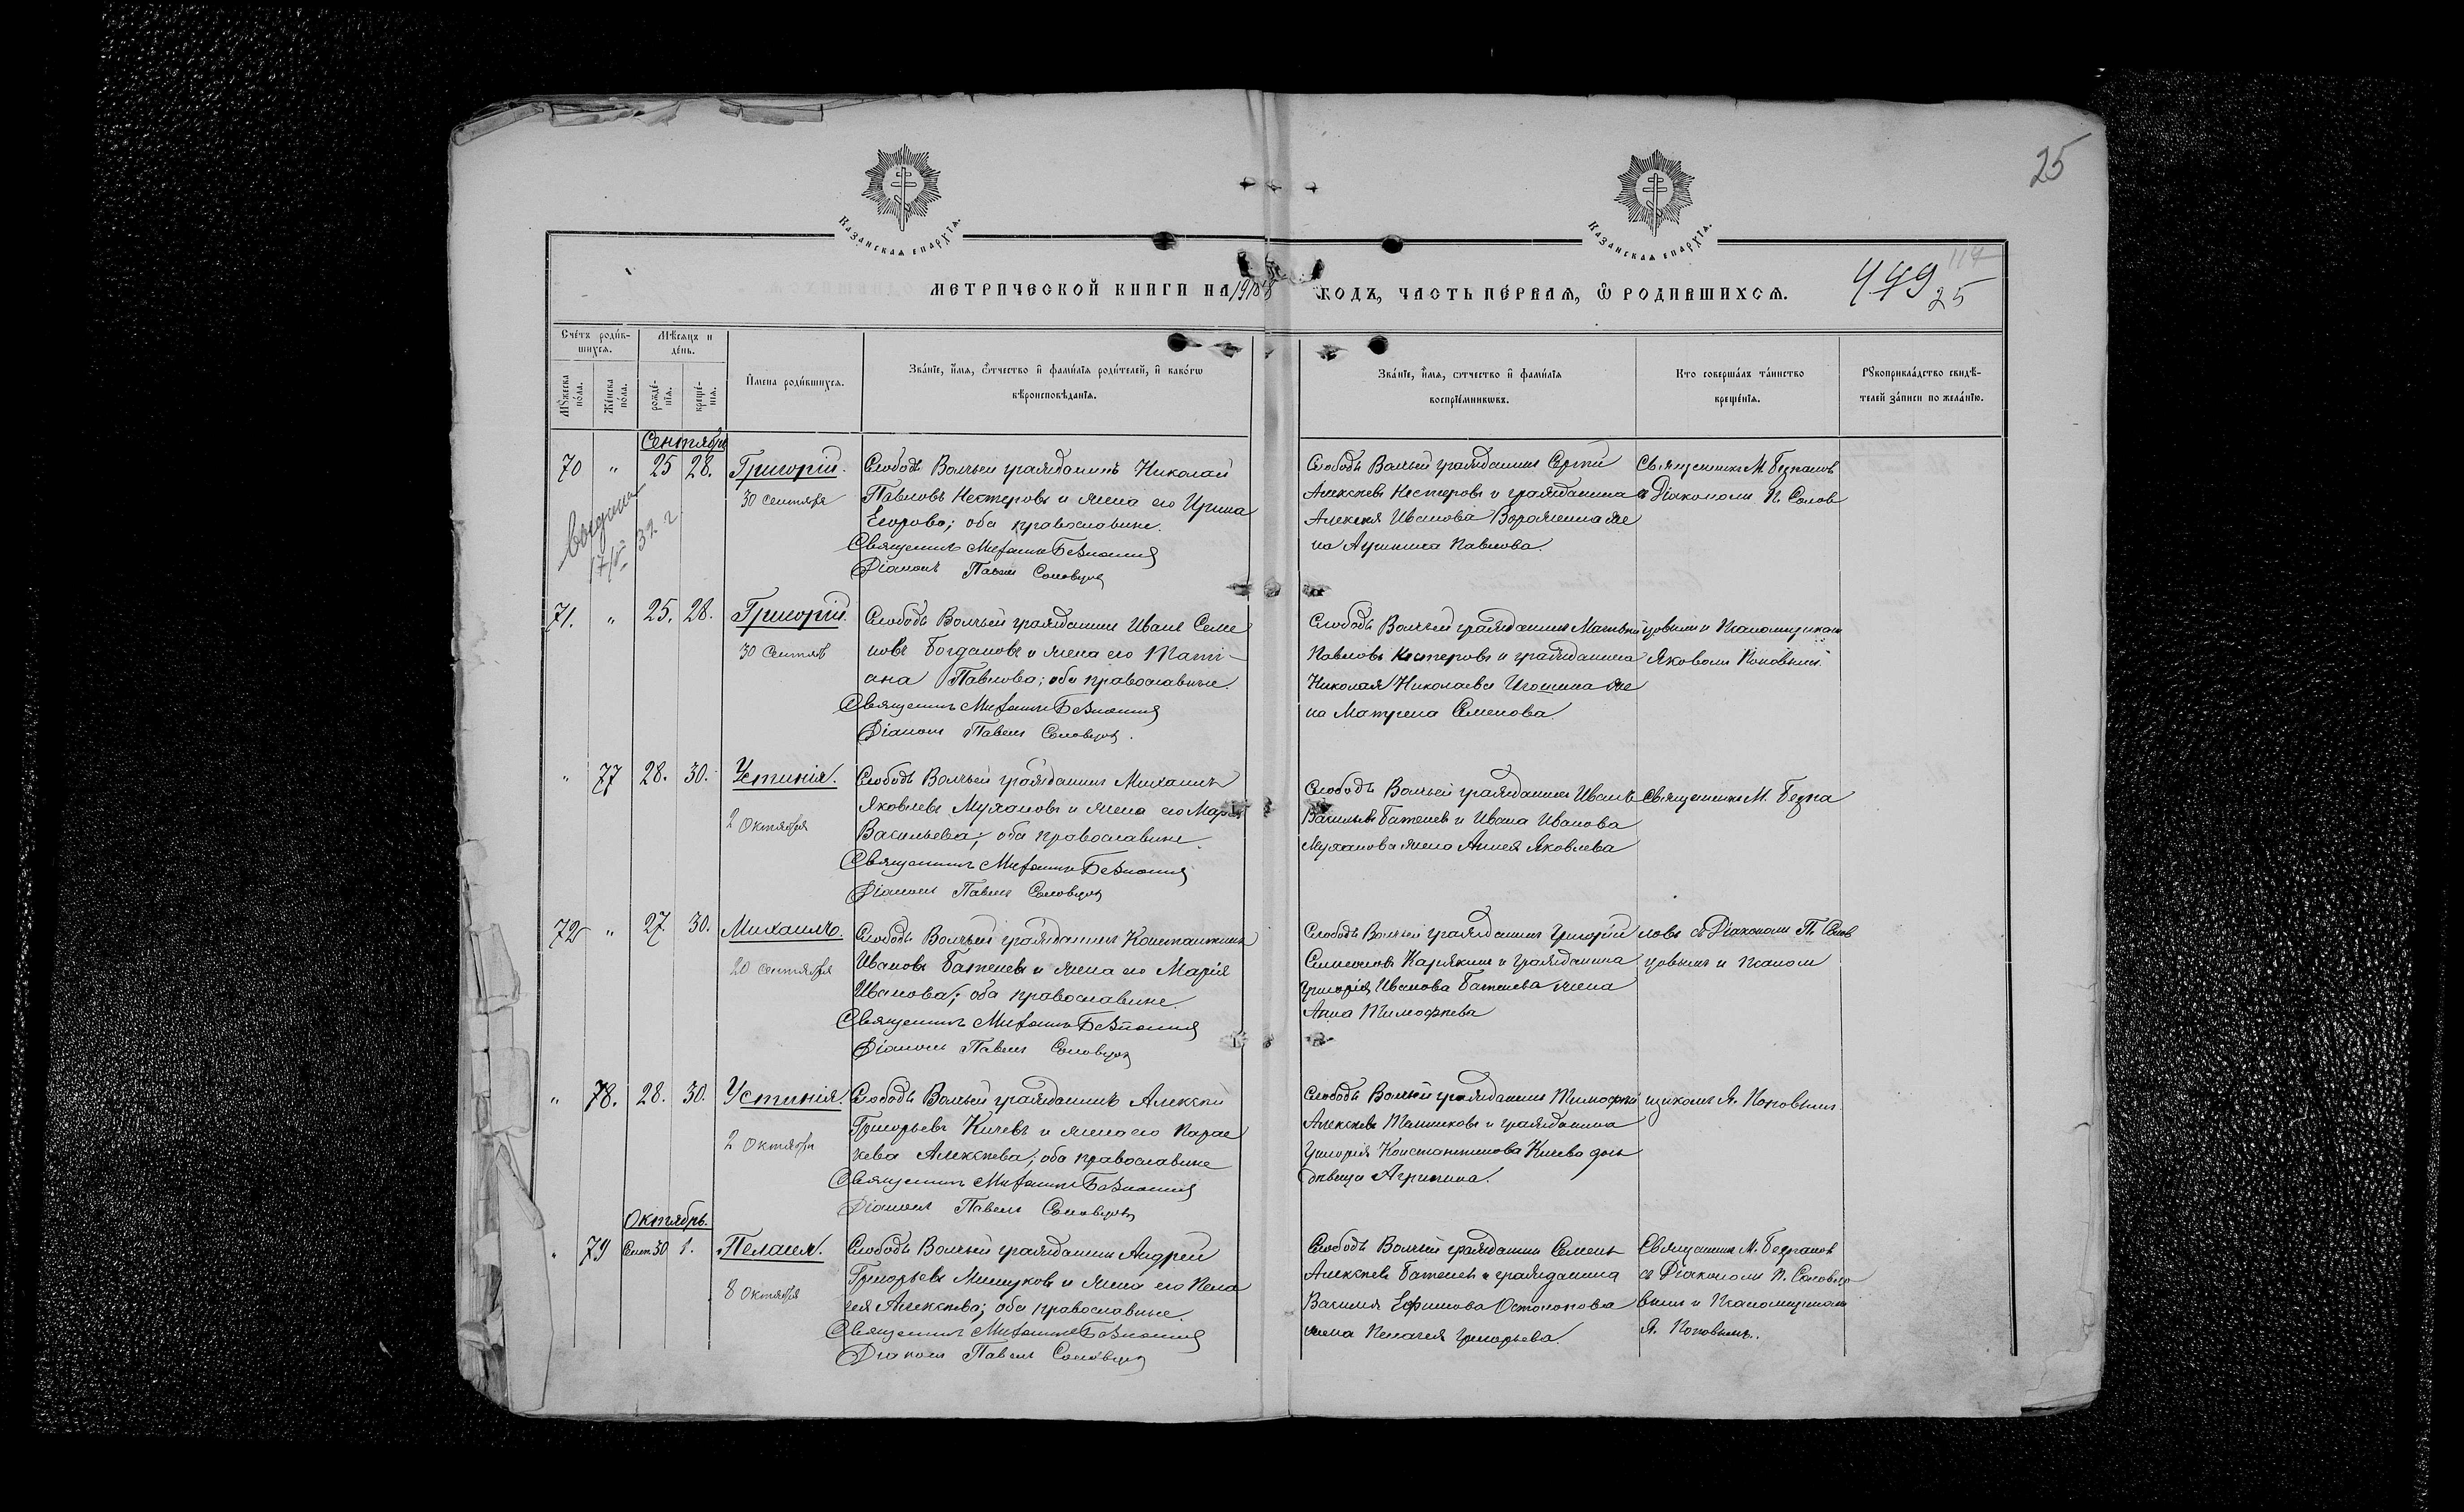 25
КАЗАНСКАѦ ЕПАРХІѦ.
КАЗАНСКАѦ ЕПАРХІѦ.
МЕТРИЧЕСКОЙ КНИГИ НА 1918 ГОДЪ, ЧАСТЬ ПЕ́РВАѦ, Ѽ РОДИВШИХСѦ.
114
449
25
Сче́тъ роди́в-
шихсѧ.
Мѣ́сѧцъ и
де́нь.
Мꙋ́жеска по́ла.
Же́нска по́ла.
рожде́-
нїѧ.
креще́-
нїѧ.
И҆мена роди́вшихсѧ.
Зва́нїе, и҆́мѧ, ѻ҆́тчество и҆ фами́лїѧ роди́телей, и҆ како́гѡ
вѣроисповѣ́данїѧ.
Зва́нїе, и҆́мѧ, ѻтчество и҆ фами́лїѧ
воспрїе́мникѡвъ.
Кто соверша́лъ та́инство
креще́нїѧ.
Рꙋкоприкла́дство свидѣ́-
телей за́писи по жела́нїю.
Сентябрь
70 " 25 28. Григорій.
30 Сентября
17/V 39 г.
Слободы Волчьей гражданинъ Николай
Павловъ Нестеровъ и жена его Ирина
Егорова; оба православные.
Священникъ
Діаконъ Павелъ Соловцовъ
Слободы Волчьей гражданинъ Сергѣй
Алексѣевъ Нестеровъ и гражданина
Алексѣя Иванова же
на Павлова.
Священникъ М.
съ Діакономъ П. Солов
71. " 25. 28. Григорій.
30 Сентяб
Слободы Волчьей гражданинъ Иванъ Семе
новъ Богдановъ и жена его Тати-
ана Павлова; оба православные.
Священникъ
Діаконъ Павелъ Соловцовъ.
Слободы Волчьей гражданинъ Матвѣй
Павловъ Нестеровъ и гражданина
Николая Николаева Игошина же
на Матрена Семенова.
цовымъ и Псаломщикомъ
Яковомъ Поповымъ.
" 77 28. 30. Устинія.
2 Октября
Слободы Волчьей гражданинъ Михаилъ
Яковлевъ Мухановъ и жена его Марія
Васильева; оба православные.
Священникъ
Діаконъ Павелъ Соловцовъ
Слободы Волчьей гражданинъ Иванъ
Васильевъ Батеневъ и Ивана Иванова
Муханова жена Яковлева
Священникъ М.
72 " 27. 30. Михаилъ.
20 Сентября
Слободы Волчьей гражданинъ Константинъ
Ивановъ Батеневъ и жена его Марія
Иванова; оба православные
Священникъ
Діаконъ Павелъ Соловцовъ
Слободы Волчьей гражданинъ Григорій
Карякинъ и гражданина
Григорія Иванова Батенева жена
Анна Тимофѣева
новъ съ Діакономъ П. Солов
цовымъ и Псалом
" 78. 28. 30. Устинія.
2 Октября
Слободы Волчьей гражданинъ Алексѣй
Григорьевъ Кичевъ и жена его Парас
кева Алексѣева; оба православные
Священникъ
Діаконъ Павелъ Соловцовъ
Слободы Волчьей гражданинъ Тимофѣй
Алексѣевъ и гражданина
Григорія Константинова Кичева дочь
дѣвица Агрипина.
щикомъ Я. Поповымъ.
Октябрь.
" 79 Сент. 30 1. Пелагія.
8 Октября
Слободы Волчьей гражданинъ Андрей
Григорьевъ и жена его Пела
гея Алексѣева; оба православные.
Священникъ
Діаконъ Павелъ Соловцовъ
Слободы Волчьей гражданинъ Семенъ
Алексѣевъ Батеневъ и гражданина
Василия Ефимова
жена Пелагея Григорьева
Священникъ М.
съ Діакономъ П. Соловцо
вымъ и Псаломщикомъ
Я. Поповымъ.